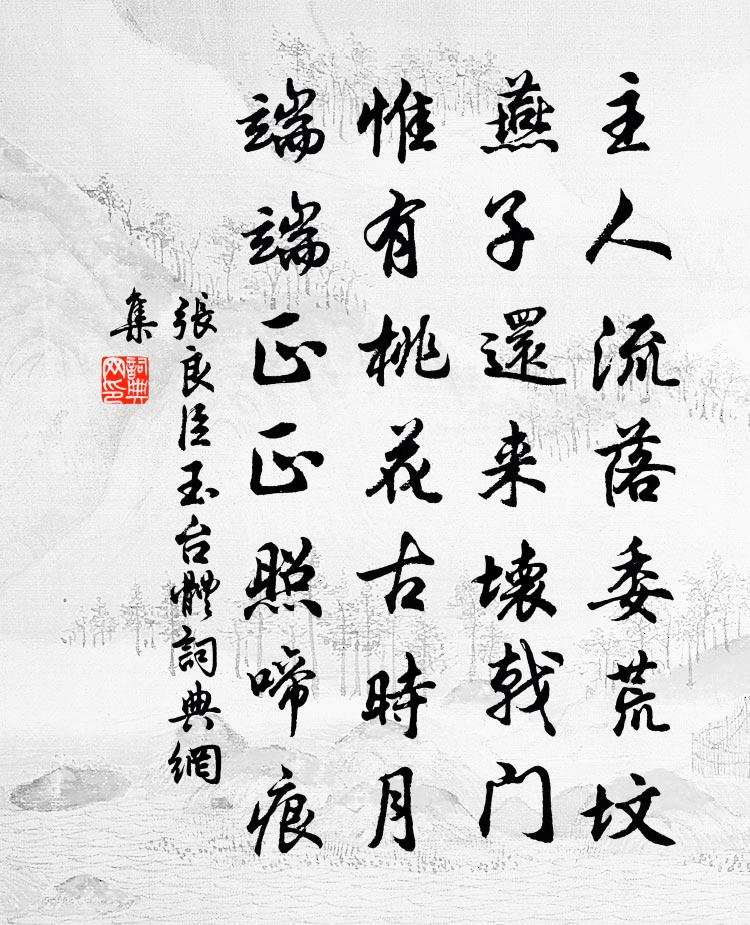 主人流落委荒坟
燕子還来壊戟门
惟有桃花古時月
端端正正照啼痕
張良臣玉台體詞典網
集
詞典
网印